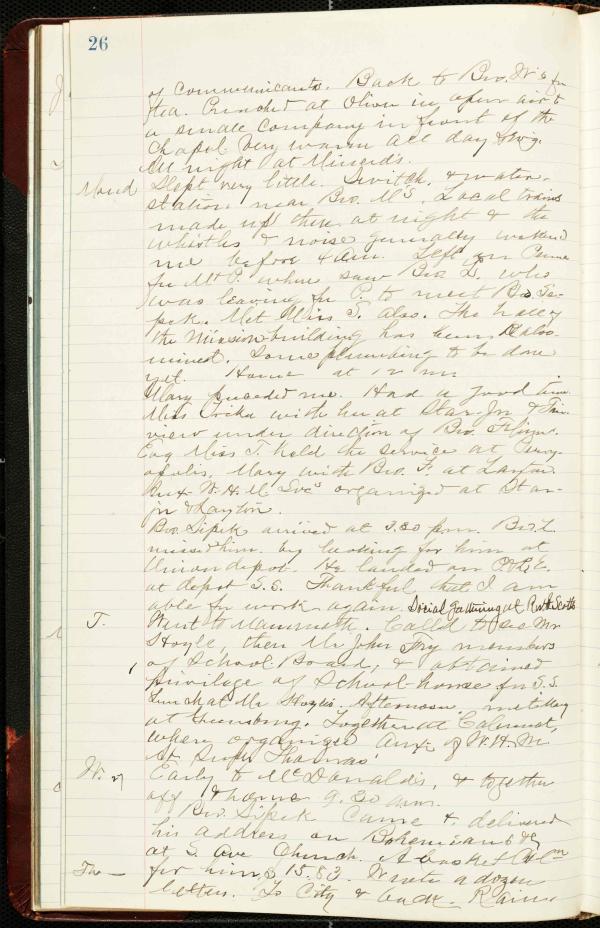 26
of communicants. Back to Bro. W's for
tea. Preached at Olive in open air to
a small company in front of the
chapel. Very warm all day &
All night at
Mond Slept very little. Switch & water-
station near Bro. M's. Local trains
made up there at night & the
whistles & noise generally wakened
me before 4 am. Left on
for Mt P. where saw Bro. L. who
was leaving for P. to meet Bro. Si-
pek. Met Miss T. also. The
the Mission building has been
mined. Some plumbing to be done
yet. Home at 12 m
Mary preceded me. Had a good time
Miss with her at Star-Jn &
view under direction of Bro.
Eng Miss T. held the service at Perry-
opolis. Mary with Bro. F. at Layton
Aux W. H. M. Soc's organized at Star-
jn & Layton.
Bro. Sipek arrived at 5.30 pm. Bro. L.
missed him by looking for him at
Union depot. He landed on P. & L. E.
at depot S. S. Thankful that I am
able for work again. Social gathering at Ruth Scotts
T. Went to Mammoth. Called to see Mr
Hoyle, then Mr John Fry members
of School Board, & obtained
privilege of School-house for S. S.
Lunch at Mr Hoyles. Afternoon, met Mary
at Greensburg. Together at Calumet,
where organized Aux. of W. H. M.
At Supt Thomas'
W. 27 Early to McDonald's, & together
off & home 9.30 am.
Bro. Sipek came & delivered
his address on Bohemians
at S. Ave Church. A basket Coln
for him, $15.83. Wrote a dozen
Thu— letters. To City & back. Rains